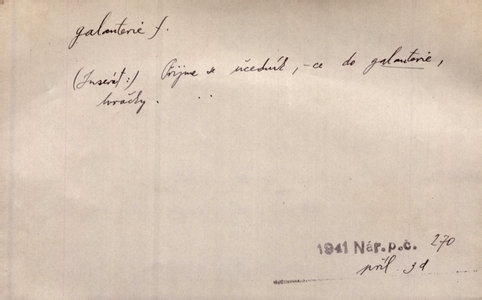 galanterie f.
(Inserát:) Přijme se učedník, -ce do galanterie,
hračky. ...
1941 Nár. p. č. 270
příl. 3d